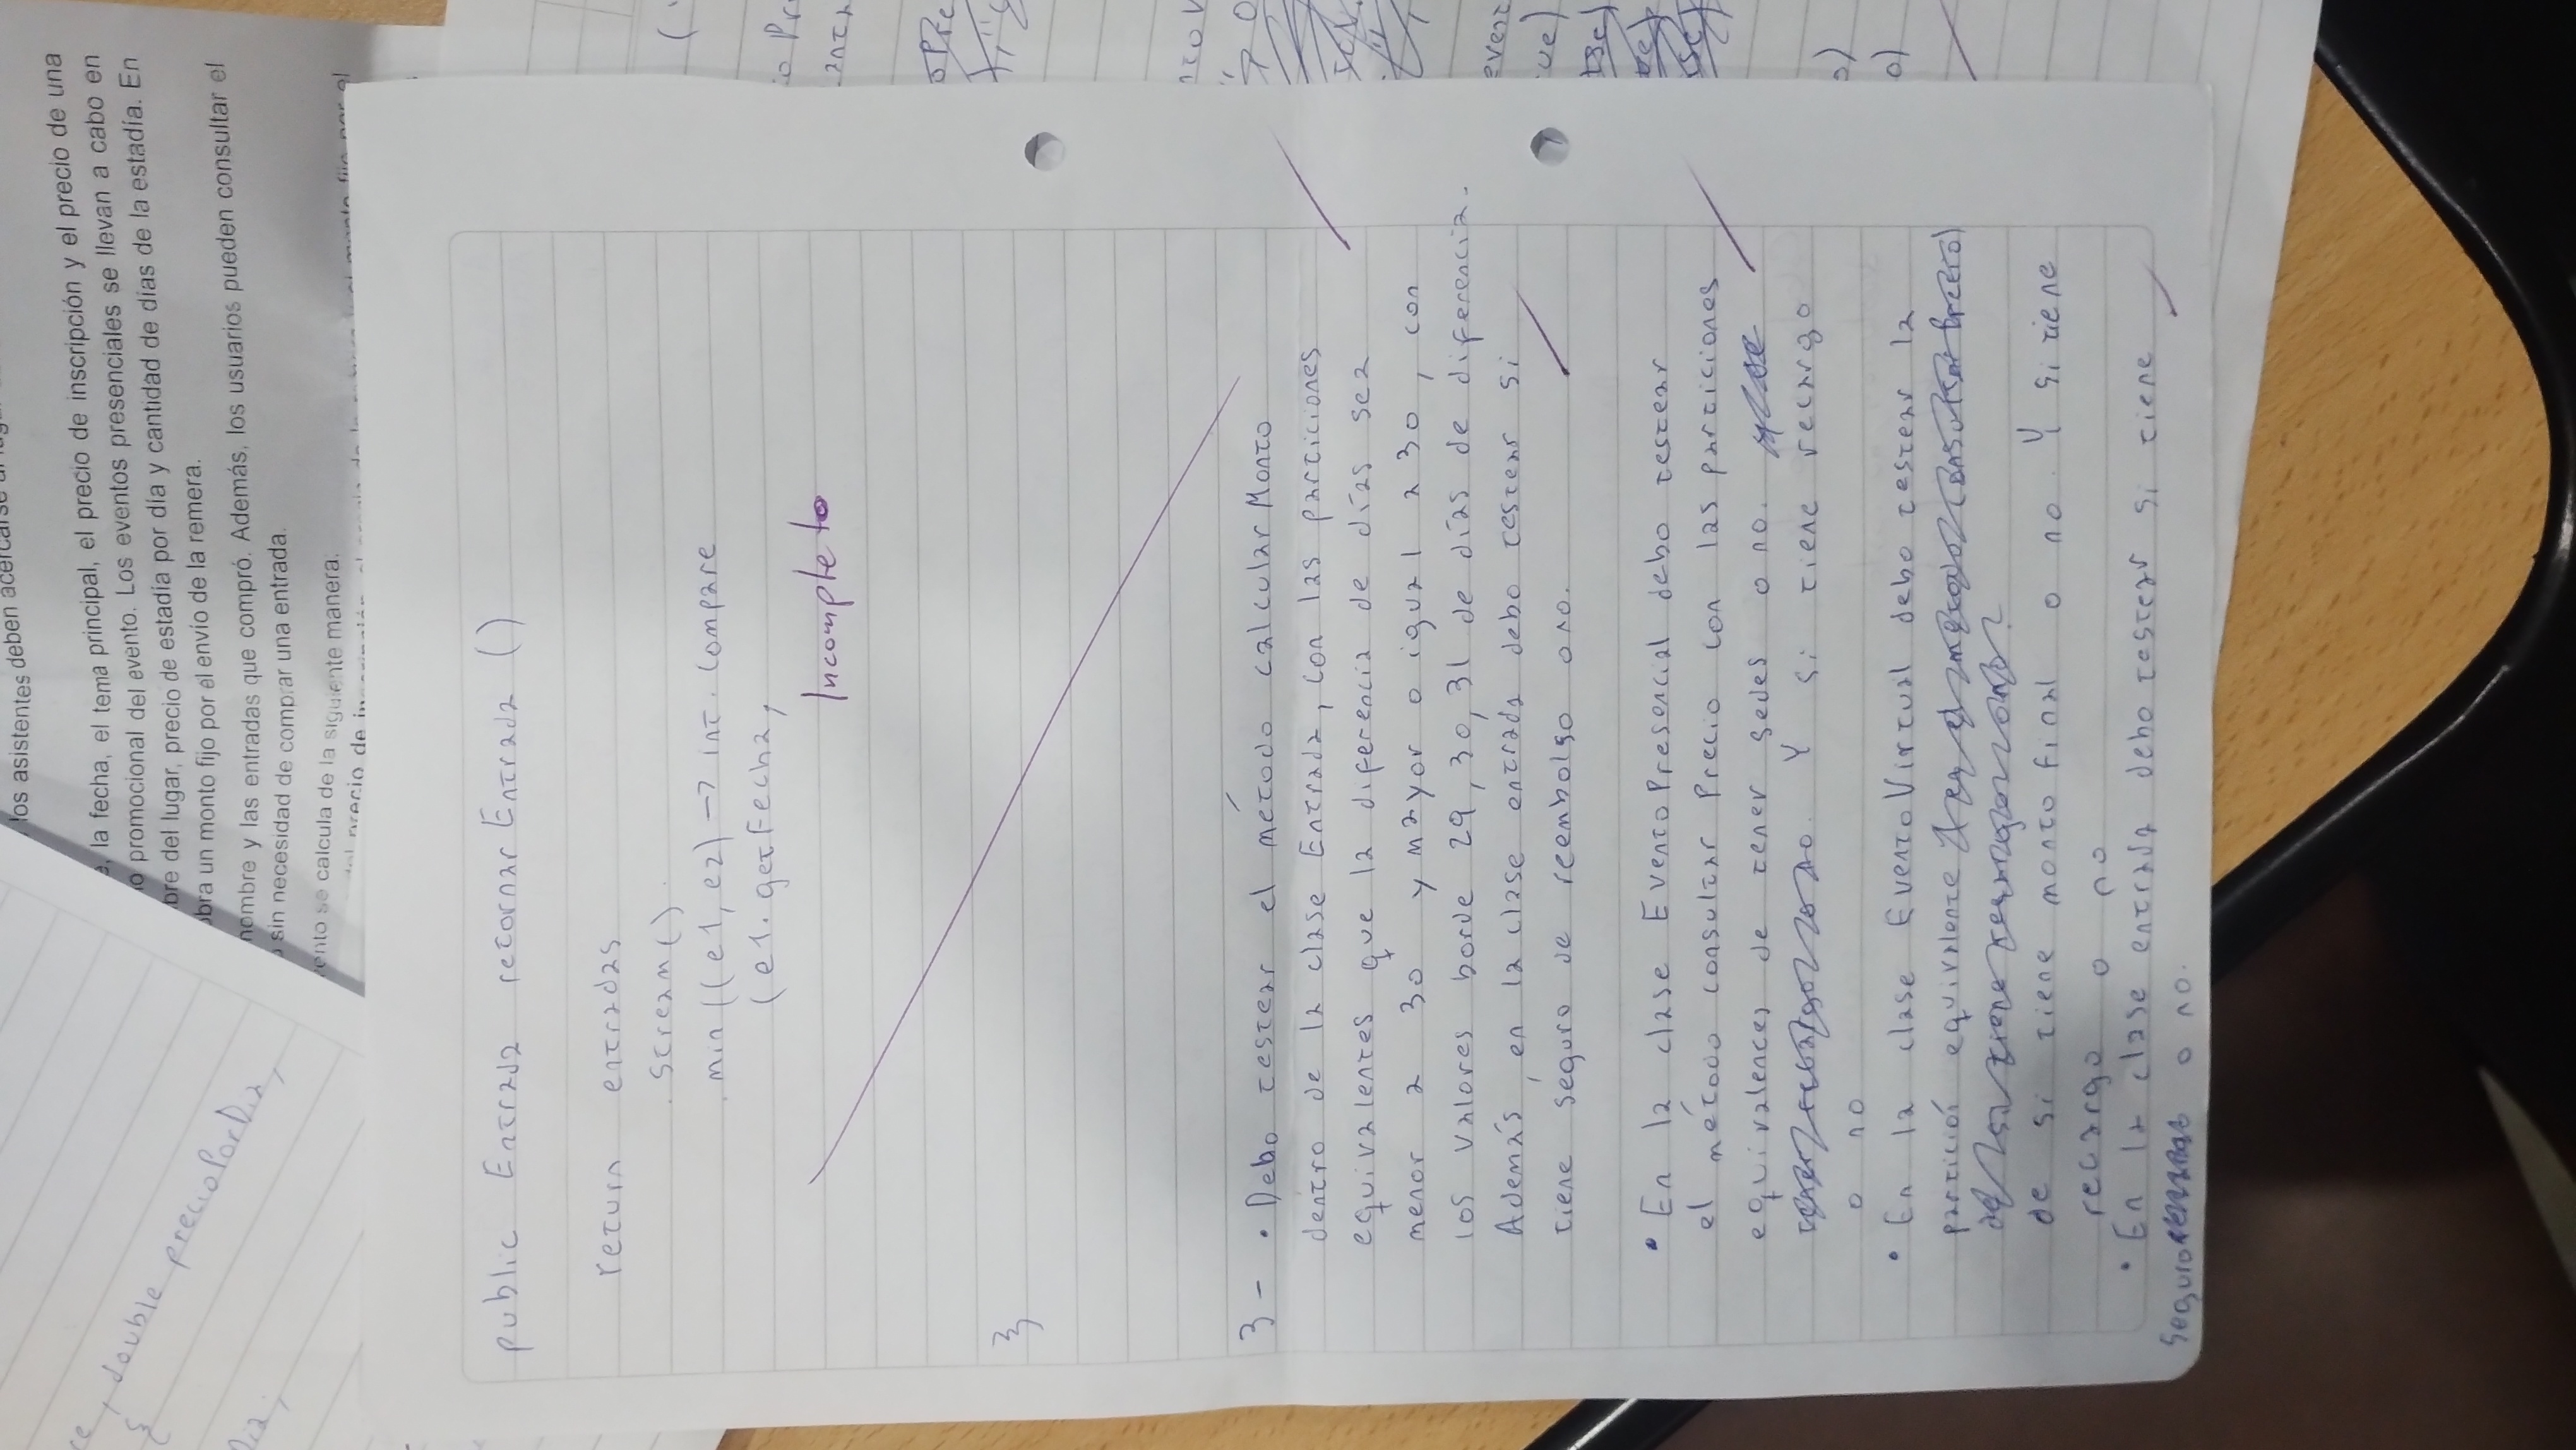 los asistentes deben
la fecha, el tema principal, el precio de inscripción y el precio de una
promocional del evento. Los eventos presenciales se llevan a cabo en
del lugar, precio de estadía por día y cantidad de días de la estadía. En
un monto fijo por el envío de la remera.
nombre y las entradas que compró. Además, los usuarios pueden consultar el
sin necesidad de comprar una entrada.
se calcula de la siguiente manera.
precio de
double precioPorDia,
public Entrada retornarEntrada ()
return entradas
.stream()
.min((e1, e2) -> int.compare
(e1.getFecha,
Incompleto
}
3- • Debo testear el método calcularMonto
dentro de la clase Entrada, con las particiones
equivalentes que la diferencia de días sea
menor a 30 y mayor o igual a 30, con
los valores borde 29, 30, 31 de días de diferencia.
Además, en la clase entrada debo testear si
tiene seguro de reembolso o no.
• En la clase EventoPresencial debo testear
el método consultar Precio con las particiones
equivalentes de tener sedes o no.
Y si tiene recargo
o no
• En la clase EventoVirtual debo testear la
partición equivalente
de si tiene monto final o no. Y si tiene
recargo o no
• En la clase entrada debo testear si tiene
seguro o no.